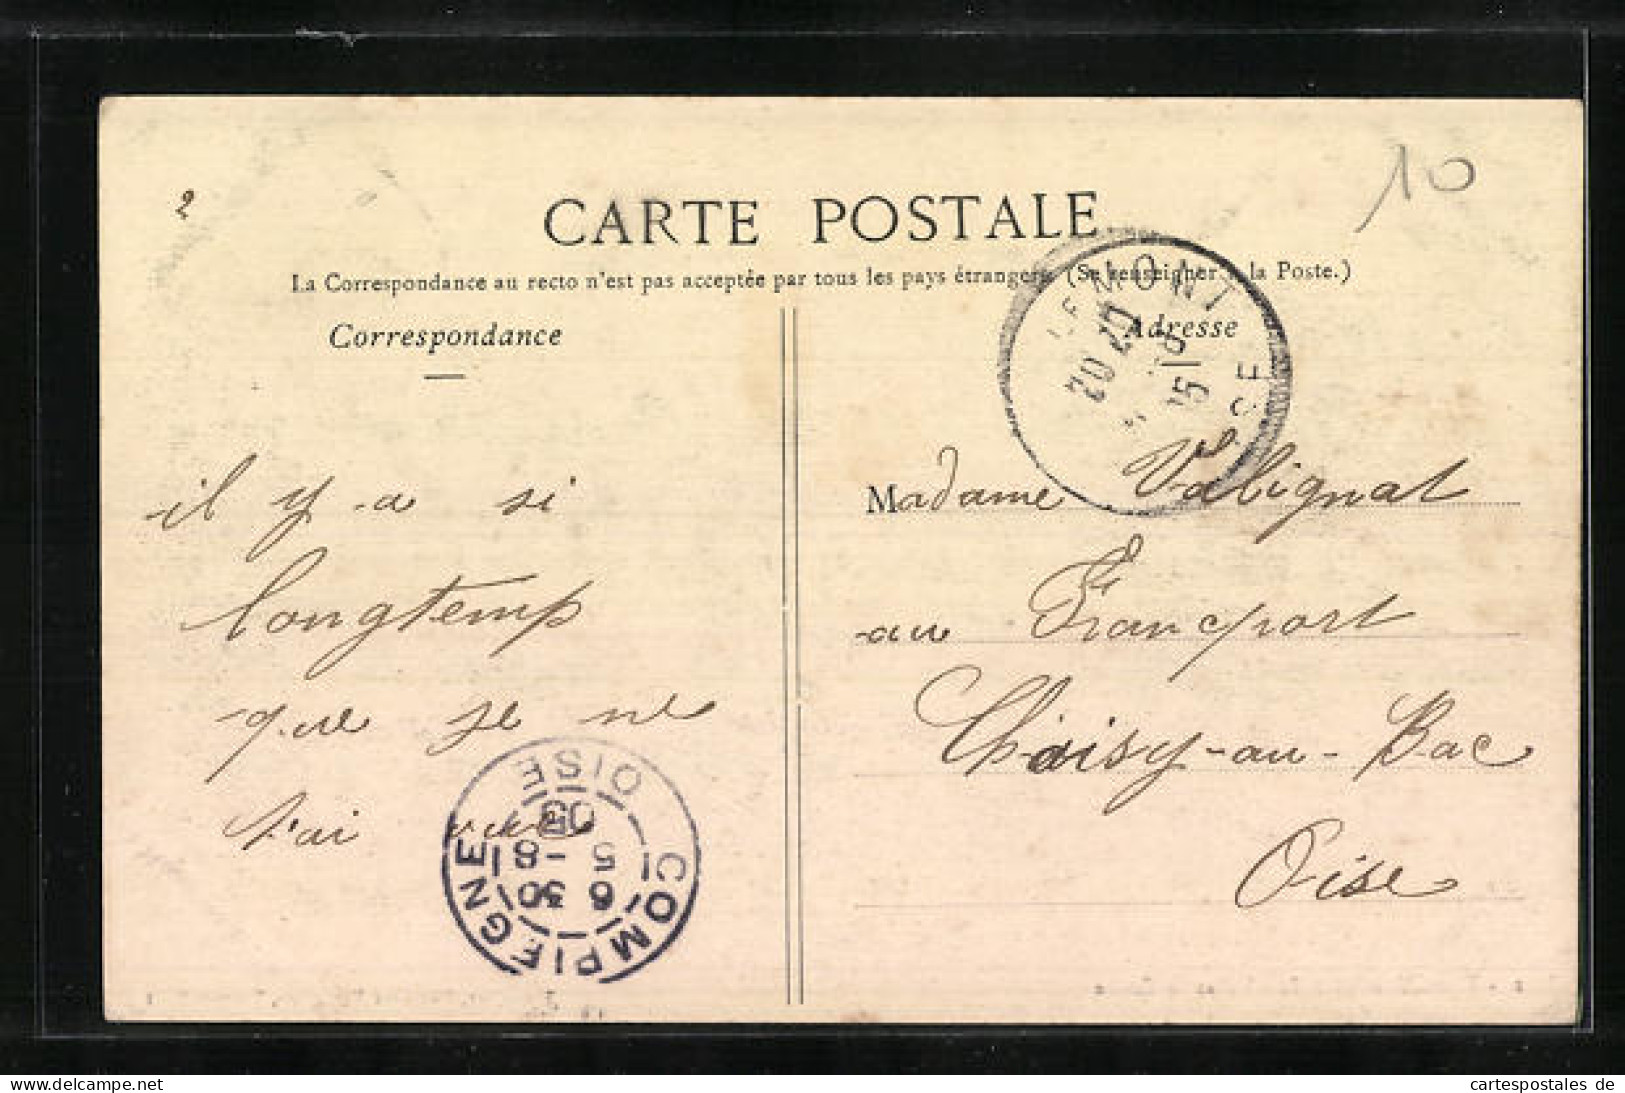 10
2
CARTE POSTALE
La Correspondance au recto n'est pas acceptée par tous les pays étrangers (Se renseigner à la Poste.)
Correspondance
Adresse
EMONT
20
15
il y a si
longtemp
que je ne
t'ai vue
Madame Valignat
au Francport
Choisy-au-Bac
Oise
COMPIEGNE
OISE
6 30
5 -8
05
delcampe.net
cartespostales de